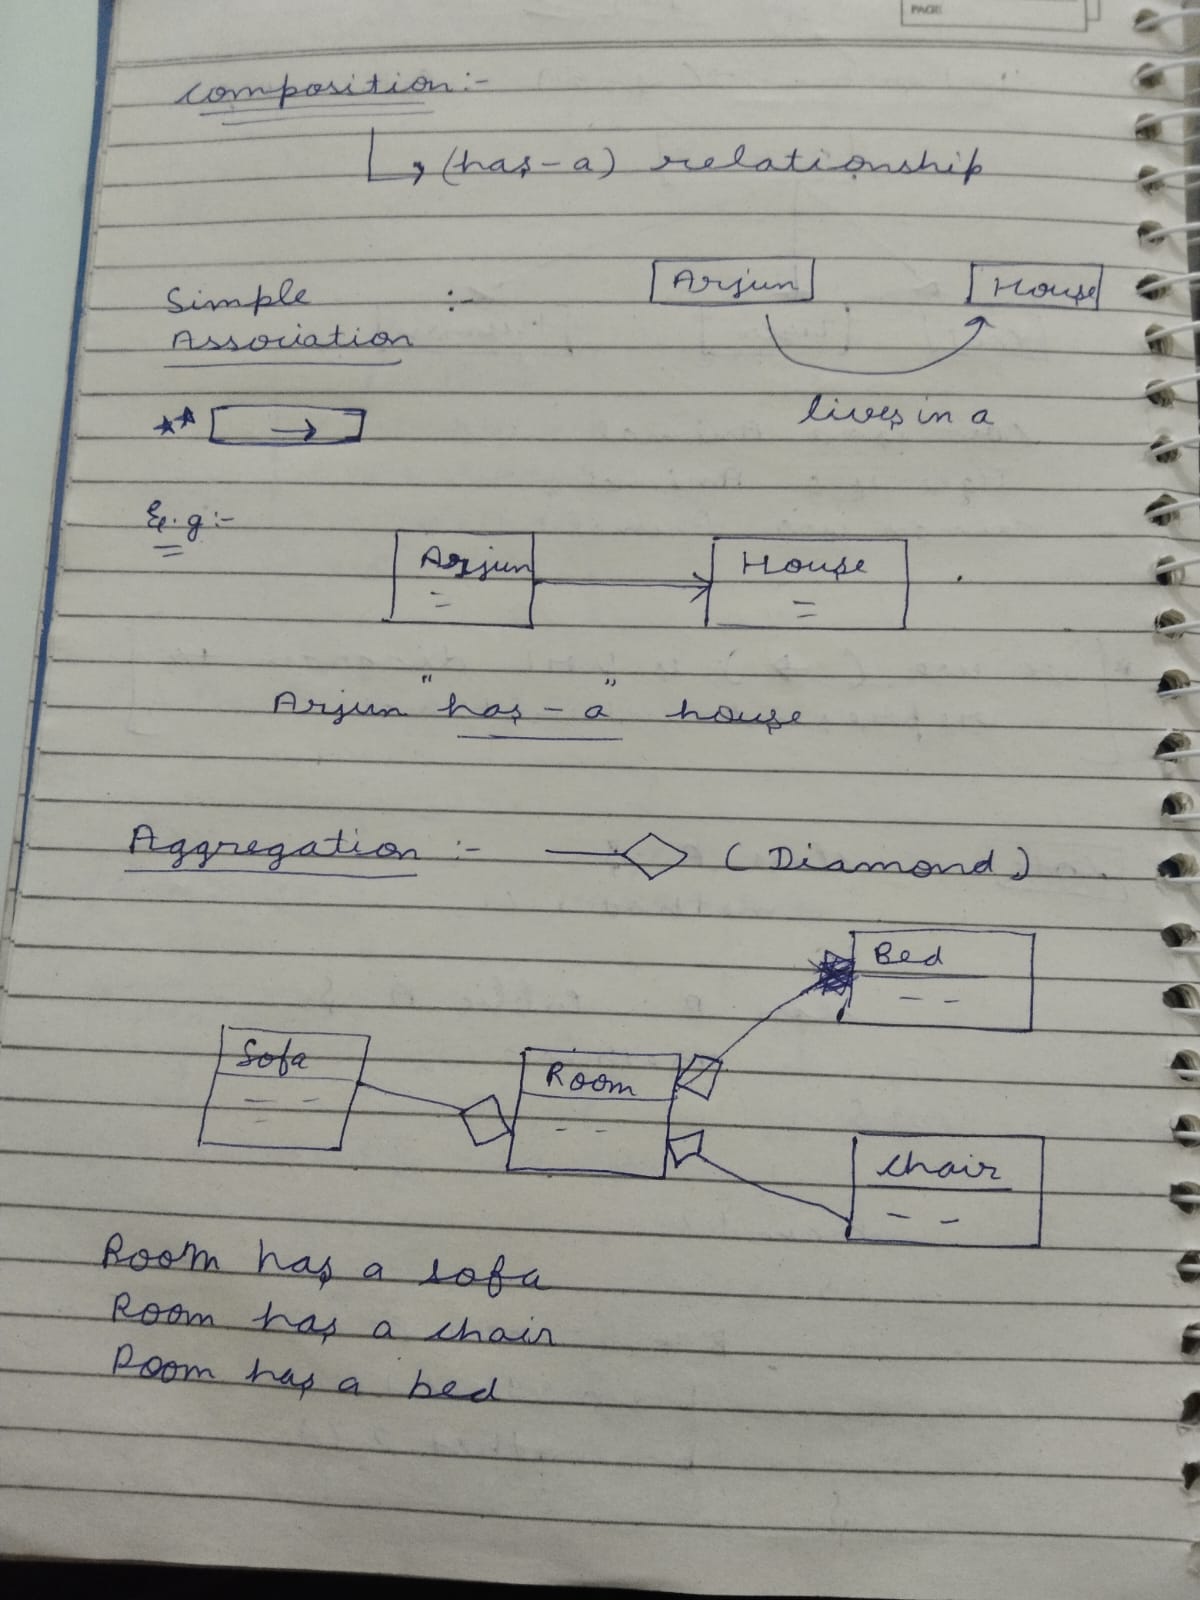 PAGE
Composition :-
(has-a) relationship
Simple Association :-
Arjun House
lives in a
E.g :-
Arjun House
Arjun "has-a" house
Aggregation :- (Diamond)
Bed
Sofa
Room
Chair
Room has a sofa
Room has a chair
Room has a bed